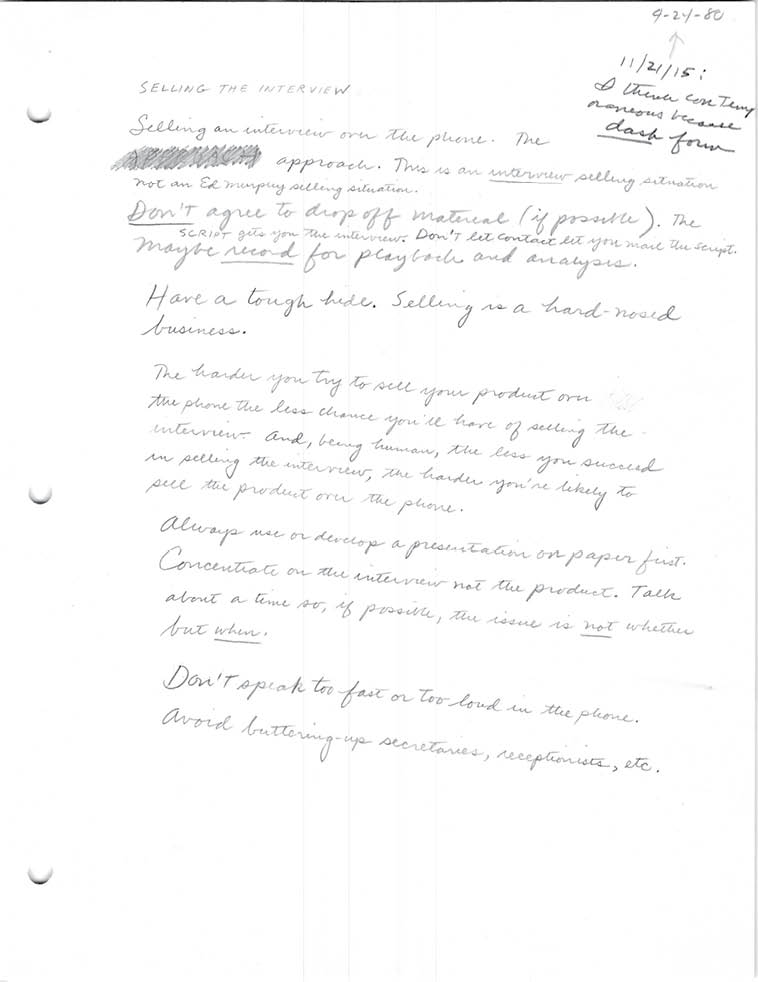 9-24-80
11/21/15:
I think contemp
oraneous because
dash form
SELLING THE INTERVIEW
Selling an interview over the phone. The
approach. This is an interview selling situation
not an Ed Murphy selling situation.
Don't agree to drop off material (if possible). The
SCRIPT gets you the interview. Don't let contact let you mail the script.
Maybe record for playback and analysis.
Have a tough hide. Selling is a hard-nosed
business.
The harder you try to sell your product over
the phone the less chance you'll have of selling the
interview. And, being human, the less you succeed
in selling the interview, the harder you're likely to
sell the product over the phone.
Always use or develop a presentation on paper first.
Concentrate on the interview not the product. Talk
about a time so, if possible, the issue is not whether
but when.
Don't speak too fast or too loud in the phone.
Avoid buttering-up secretaries, receptionists, etc.